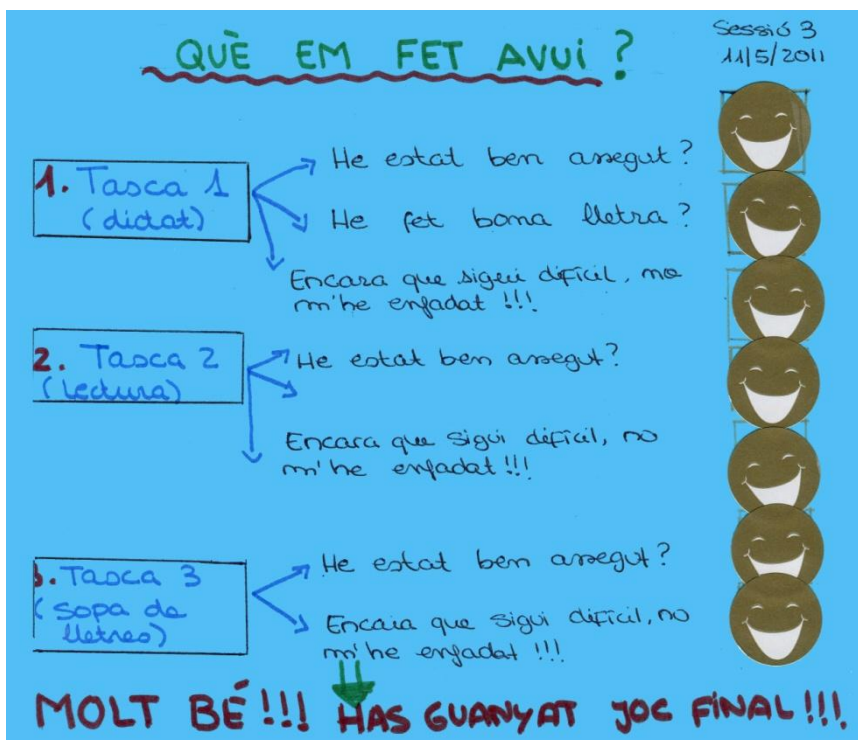 QUÈ EM FET AVUI?
Sessió 3
11/5/2011
1. Tasca 1
(dictat)
He estat ben assegut?
He fet bona lletra?
Encara que sigui difícil, no
m'he enfadat !!!
2. Tasca 2
(Lectura)
He estat ben assegut?
Encara que sigui difícil, no
m'he enfadat !!!
3. Tasca 3
(sopa de
lletres)
He estat ben assegut?
Encara que sigui difícil, no
m'he enfadat !!!
MOLT BÉ!!! HAS GUANYAT JOC FINAL!!!